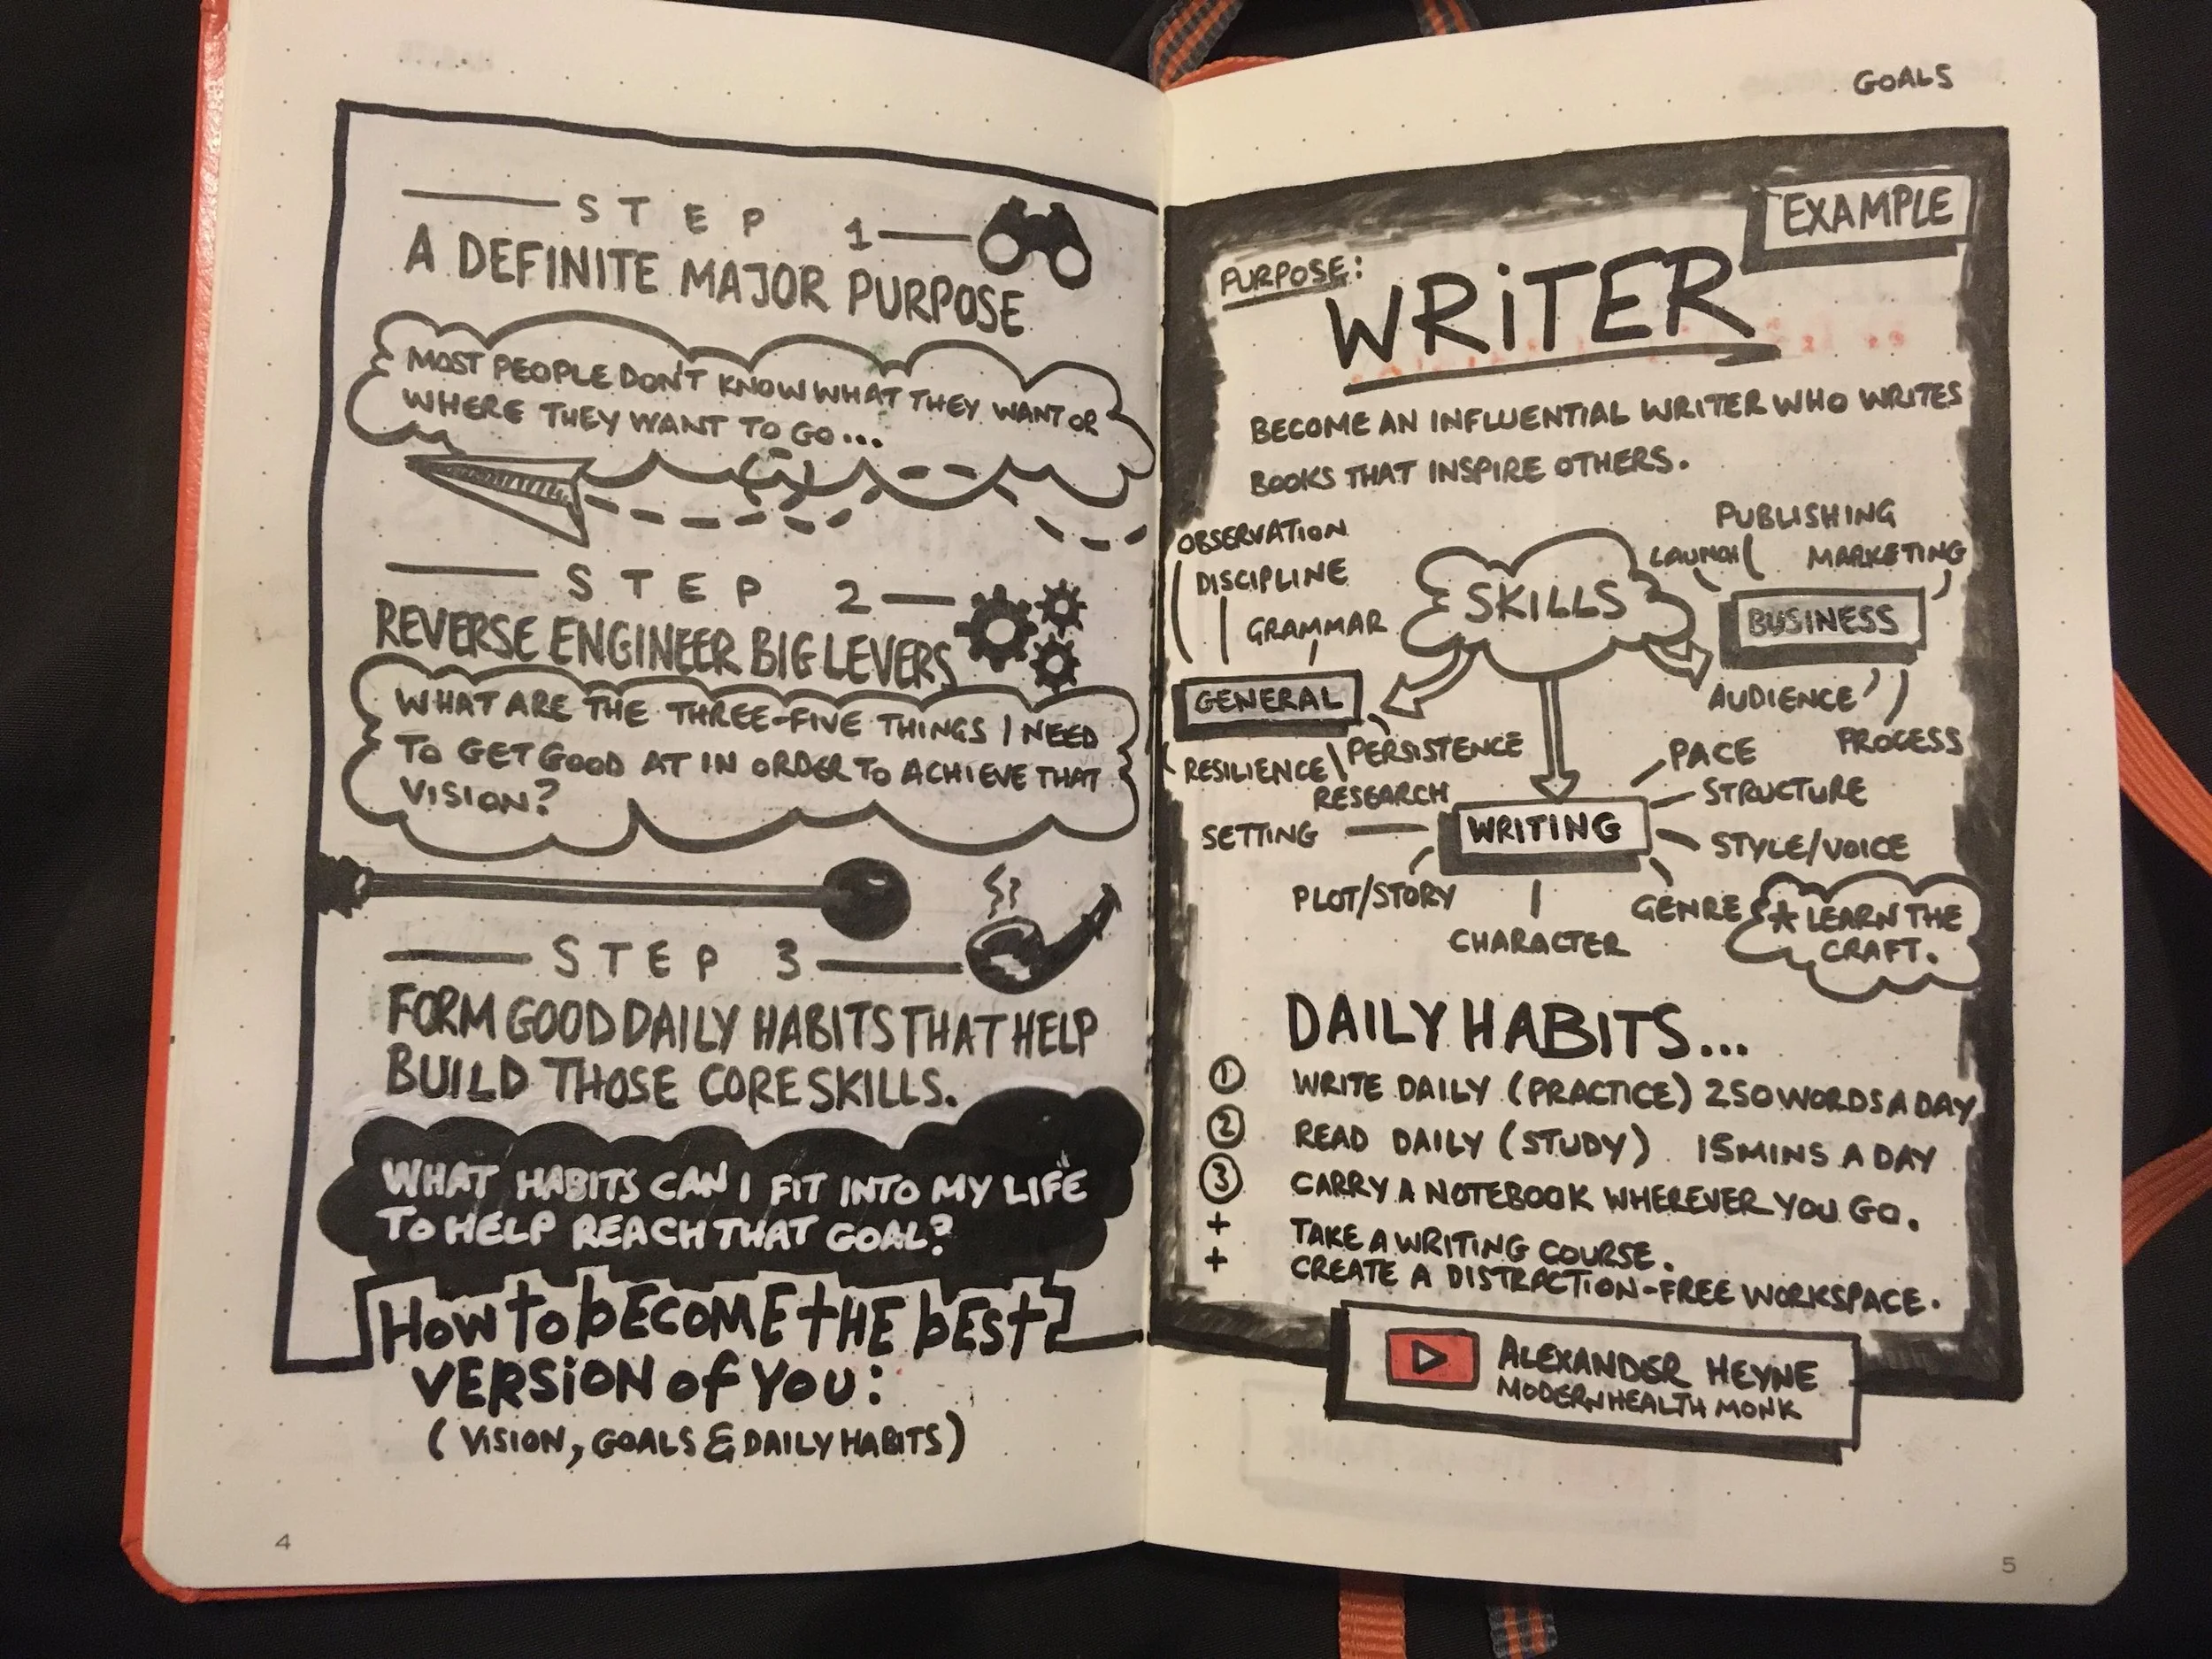 STEP 1
A DEFINITE MAJOR PURPOSE
MOST PEOPLE DON'T KNOW WHAT THEY WANT OR
WHERE THEY WANT TO GO...
STEP 2
REVERSE ENGINEER BIG LEVERS
WHAT ARE THE THREE-FIVE THINGS I NEED
TO GET GOOD AT IN ORDER TO ACHIEVE THAT
VISION?
STEP 3
FORM GOOD DAILY HABITS THAT HELP
BUILD THOSE CORE SKILLS.
WHAT HABITS CAN I FIT INTO MY LIFE
TO HELP REACH THAT GOAL?
HOW TO BECOME THE BEST
VERSION OF YOU:
(VISION, GOALS & DAILY HABITS)
4
GOALS
EXAMPLE
PURPOSE:
WRITER
BECOME AN INFLUENTIAL WRITER WHO WRITES
BOOKS THAT INSPIRE OTHERS.
SKILLS
OBSERVATION
DISCIPLINE
GRAMMAR
GENERAL
RESILIENCE
PERSISTENCE
PUBLISHING
LAUNCH
MARKETING
BUSINESS
AUDIENCE
PROCESS
RESEARCH
SETTING
WRITING
PACE
STRUCTURE
STYLE/VOICE
PLOT/STORY
CHARACTER
GENRE
* LEARN THE
CRAFT.
DAILY HABITS...
1 WRITE DAILY (PRACTICE) 250 WORDS A DAY
2 READ DAILY (STUDY) 15 MINS A DAY
3 CARRY A NOTEBOOK WHEREVER YOU GO.
+ TAKE A WRITING COURSE.
+ CREATE A DISTRACTION-FREE WORKSPACE.
ALEXANDER HEYNE
MODERN HEALTH MONK
5